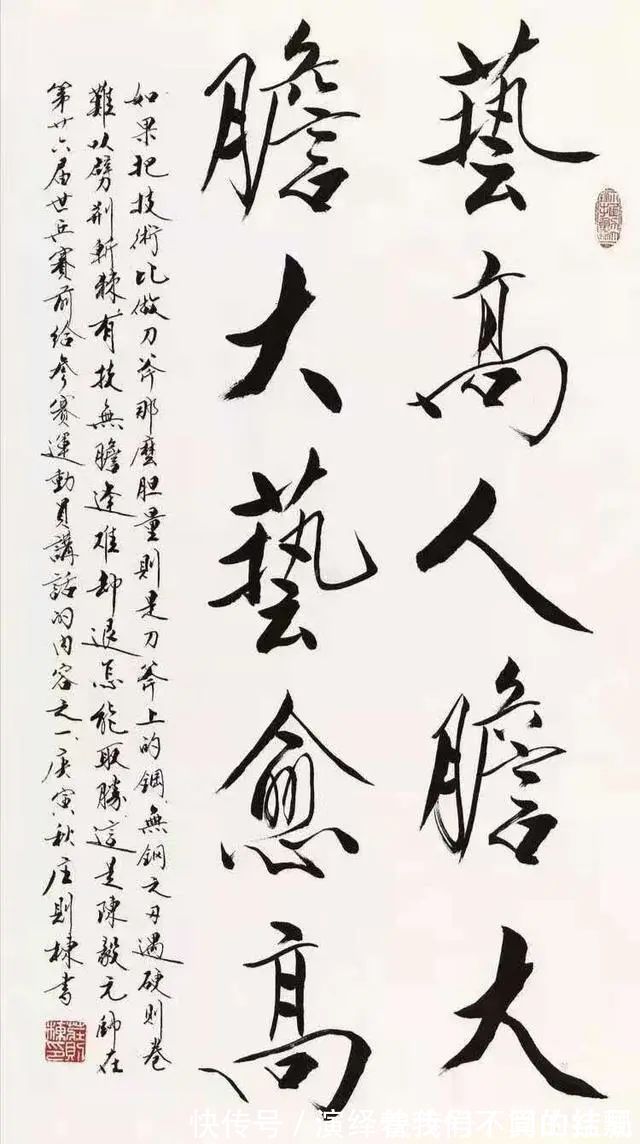 藝高人膽大
膽大藝愈高
如果把技術比做刀斧那麼胆量則是刀斧上的鋼無鋼之刃遇硬則卷
難以劈荆斬棘有技無膽逢难却退怎能取勝這是陳毅元帥在
第廿六届世乒賽前给參賽運動員講話的内容之一庚寅秋庄則棟書
莊則棟印
快传号 / 演绎